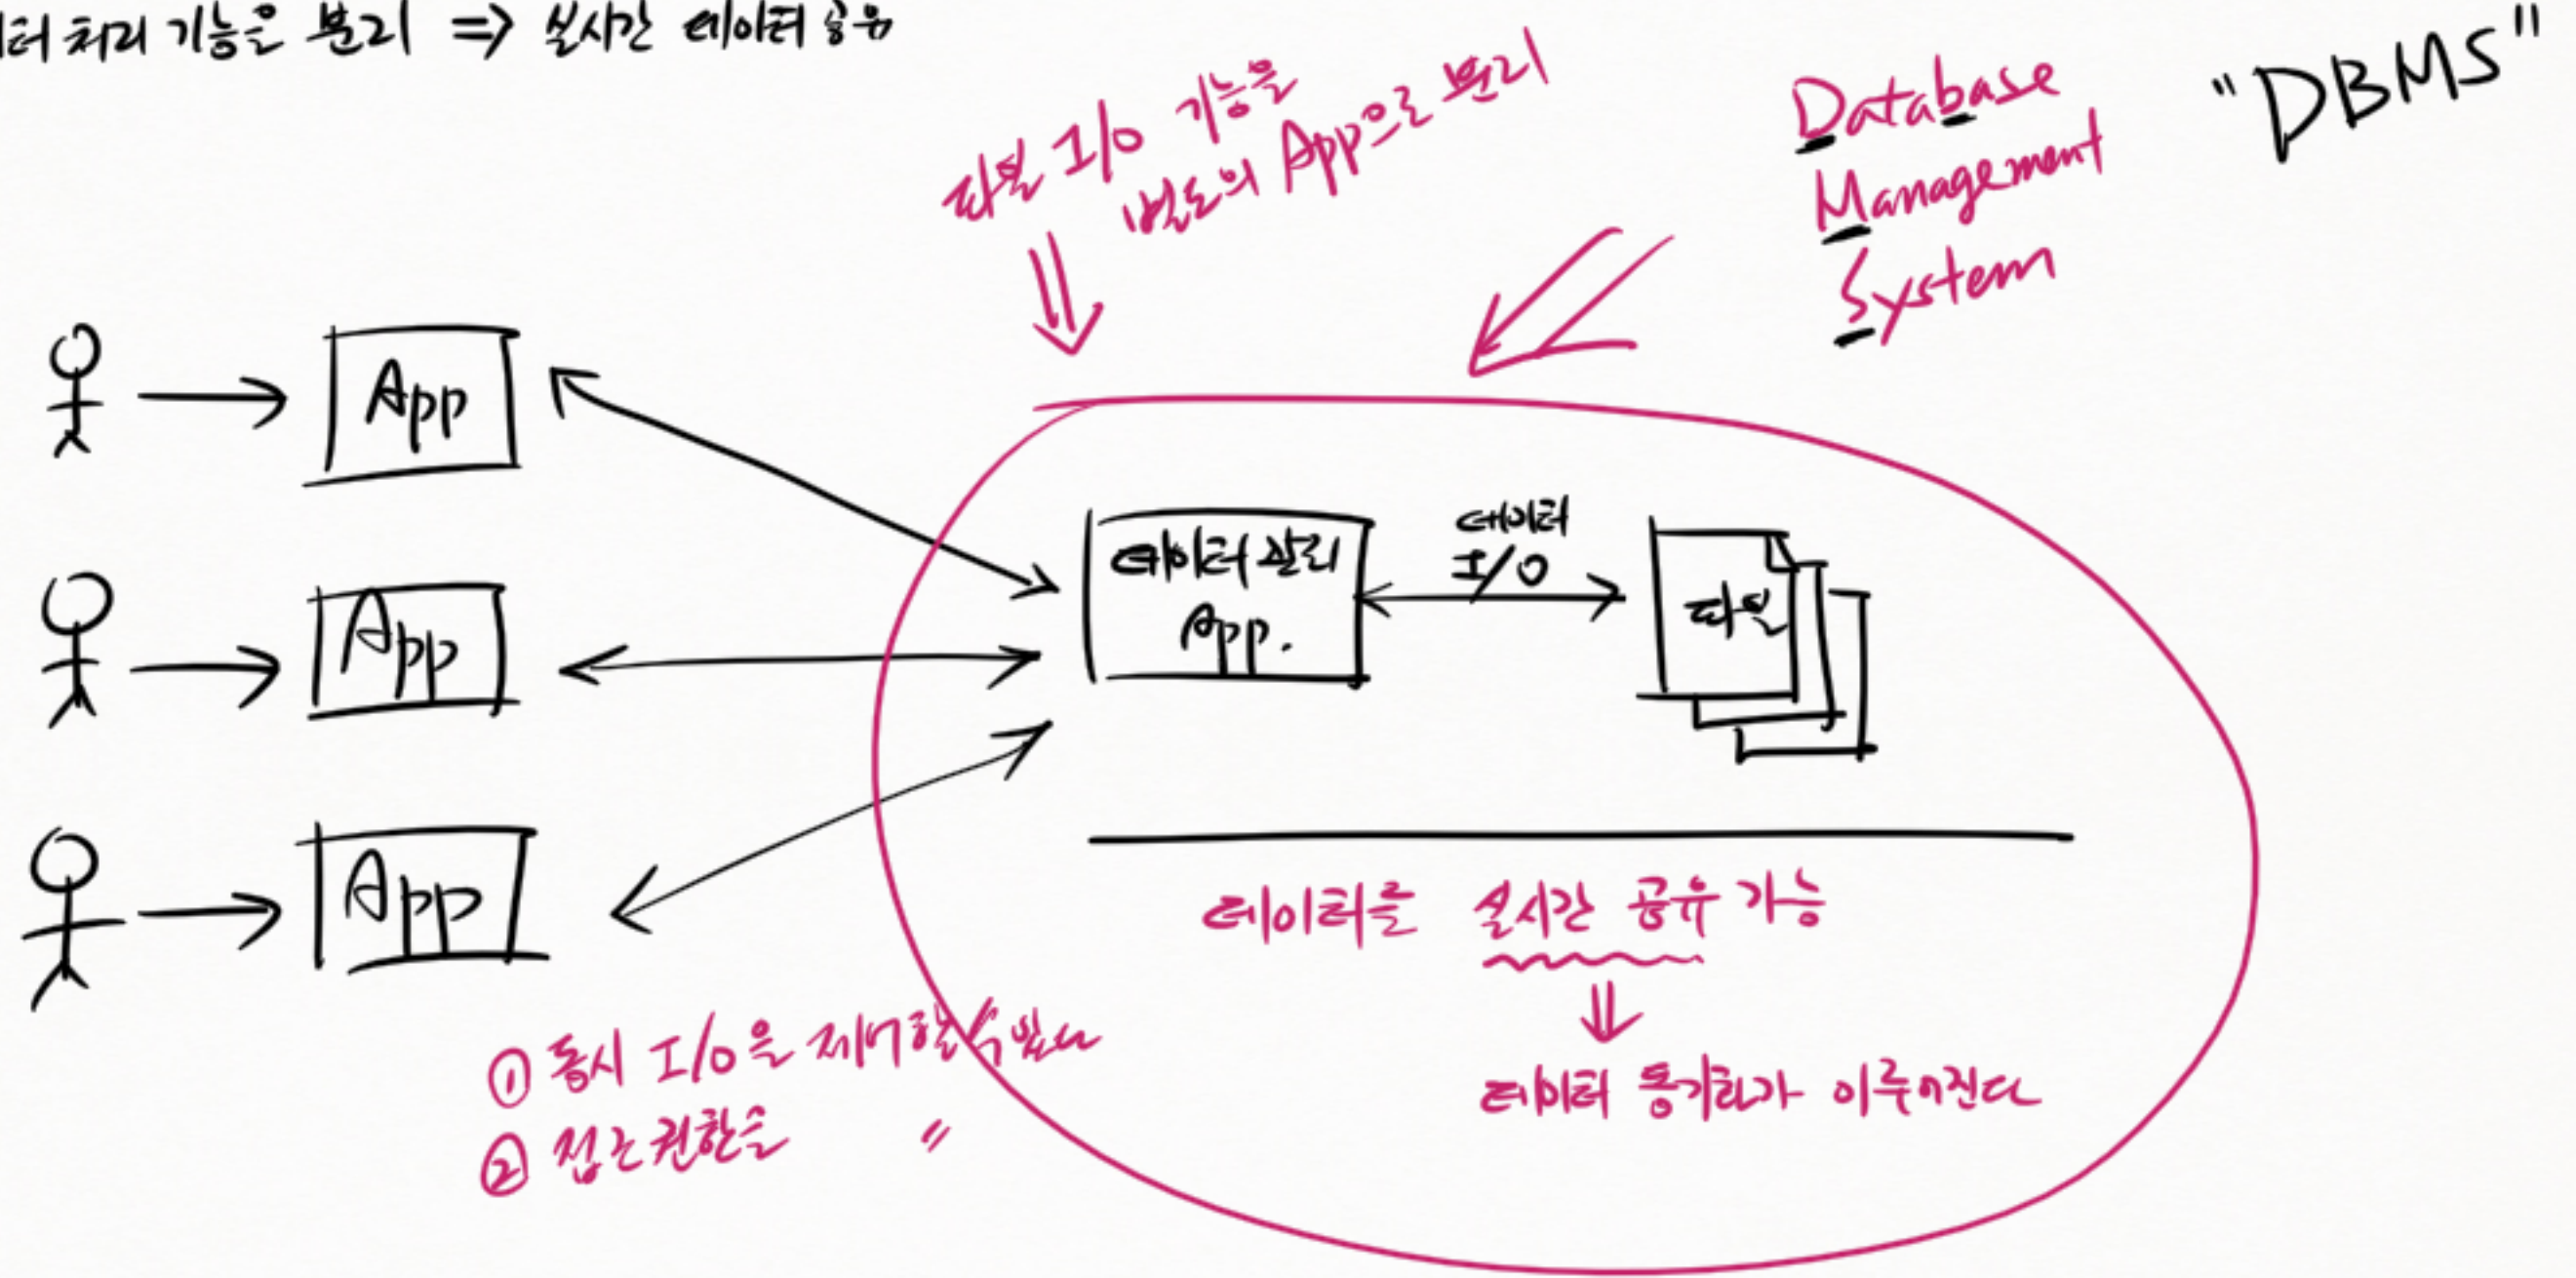 터 처리 기능을 분리 => 실시간 데이터 공유
파일 I/O 기능을
별도의 App으로 분리
Database
Management
System
"DBMS"
App
App
App
데이터 관리
App.
데이터
I/O
파일
데이터를 실시간 공유 가능
데이터 동기화가 이루어진다
① 동시 I/O을 제어할 수 있다
② 접근 권한을 〃